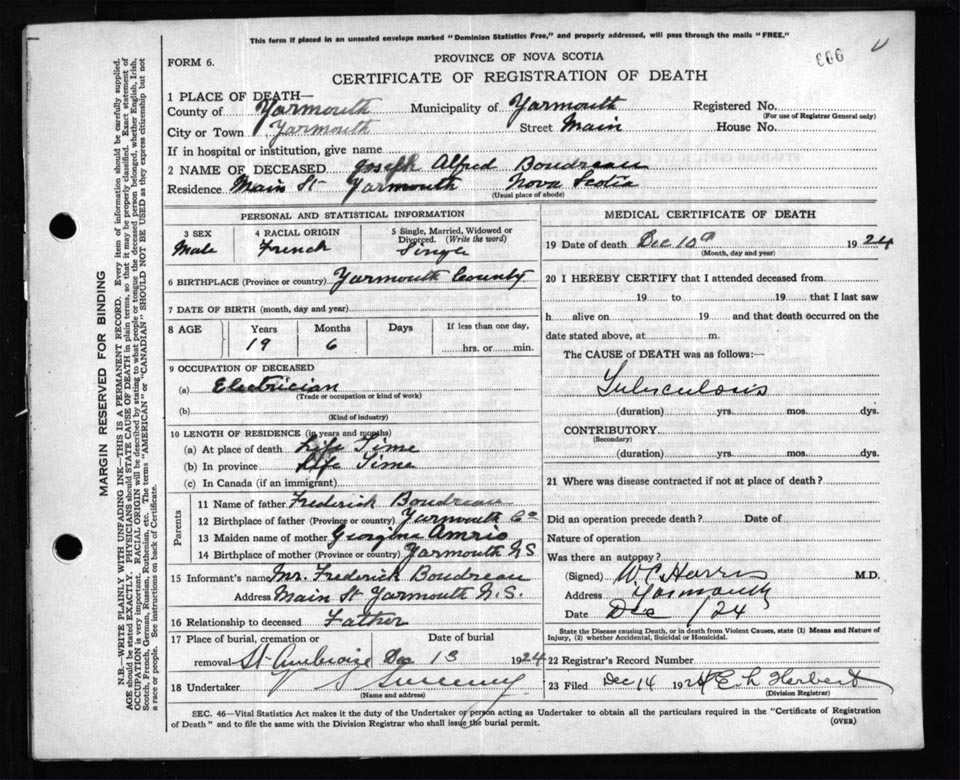 This form if placed in an unsealed envelope marked "Dominion Statistics Free," and properly addressed, will pass through the mails "FREE."
FORM 6.
PROVINCE OF NOVA SCOTIA
CERTIFICATE OF REGISTRATION OF DEATH
1 PLACE OF DEATH—
County of Yarmouth Municipality of Yarmouth Registered No.
(For use of Registrar General only)
City or Town Yarmouth Street Main House No.
If in hospital or institution, give name
2 NAME OF DECEASED Joseph Alfred Boudreau
Residence Main St Yarmouth Nova Scotia
(Usual place of abode)
PERSONAL AND STATISTICAL INFORMATION
3 SEX 4 RACIAL ORIGIN 5 Single, Married, Widowed or Divorced. (Write the word)
Male French Single
6 BIRTHPLACE (Province or country) Yarmouth County
7 DATE OF BIRTH (month, day and year)
8 AGE Years Months Days If less than one day,
19 6 hrs. or min.
9 OCCUPATION OF DECEASED
(a) Electrician
(Trade or occupation or kind of work)
(b)
(Kind of industry)
10 LENGTH OF RESIDENCE (in years and months)
(a) At place of death Life Time
(b) In province Life Time
(c) In Canada (if an immigrant)
Parents
11 Name of father Frederick Boudreau
12 Birthplace of father (Province or country) Yarmouth Co
13 Maiden name of mother Georgina
14 Birthplace of mother (Province or country) Yarmouth NS
15 Informant's name Mr. Frederick Boudreau
Address Main St Yarmouth N.S.
16 Relationship to deceased Father
17 Place of burial, cremation or Date of burial
removal St Ambroise Dec 13 1924
18 Undertaker Sweeney
(Name and address)
MEDICAL CERTIFICATE OF DEATH
19 Date of death Dec 10 1924
(Month, day and year)
20 I HEREBY CERTIFY that I attended deceased from
19 to 19 that I last saw
h alive on 19 and that death occurred on the
date stated above, at m.
The CAUSE of DEATH was as follows:—
Tuberculosis
(duration) yrs. mos. dys.
CONTRIBUTORY
(Secondary)
(duration) yrs. mos. dys.
21 Where was disease contracted if not at place of death?
Did an operation precede death? Date of
Nature of operation
Was there an autopsy?
(Signed) W C Harris M.D.
Address Yarmouth
Date Dec /24
State the Disease causing Death, or in death from Violent Causes, state (1) Means and Nature of
Injury, (2) whether Accidental, Suicidal or Homicidal.
22 Registrar's Record Number
23 Filed Dec 14 192 Herbert
(Division Registrar)
SEC. 46—Vital Statistics Act makes it the duty of the Undertaker or person acting as Undertaker to obtain all the particulars required in the "Certificate of Registration
of Death" and to file the same with the Division Registrar who shall issue the burial permit.
(OVER)
MARGIN RESERVED FOR BINDING
N.B.—WRITE PLAINLY WITH UNFADING INK—THIS IS A PERMANENT RECORD. Every item of information should be carefully supplied.
AGE should be stated EXACTLY. PHYSICIANS should STATE CAUSE OF DEATH in plain terms, so that it may be properly classified. Exact statement of
OCCUPATION is very important. RACIAL ORIGIN will be described by stating to what people or tongue the deceased person belonged, whether English, Irish,
Scotch, French, German, Russian, Ruthenian, etc. The terms "AMERICAN" or "CANADIAN" SHOULD NOT BE USED as they express citizenship but not
a race or people. See instructions on back of Certificate.